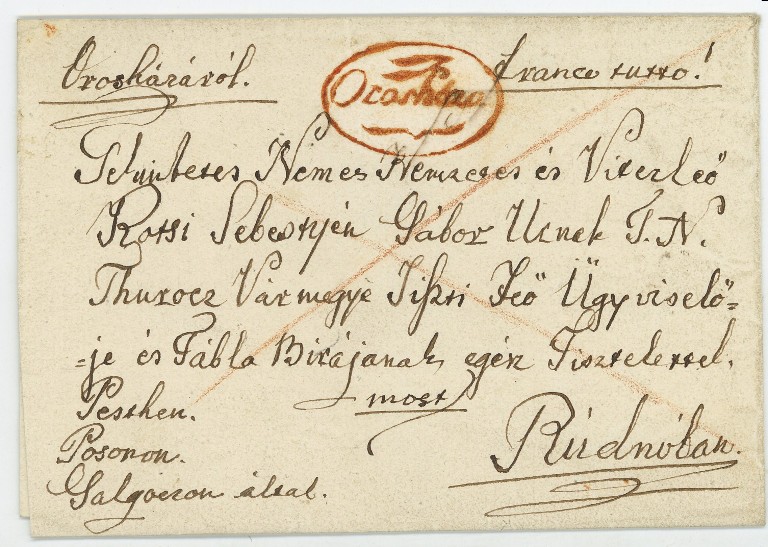 Orosházáról.
Franco tutto!
Orosháza
Tekintetes Nemes Nemzetes és Vitézlő
Kossi Sebestyén Gábor Urnak T. N.
Thurocz Vármegye Tiszti Feő Ügyviselő=
=je és Tábla Birájának egész Tisztelettel.
most
Pesthen.
Posonon.
Galgoczon által.
Rudnóban.